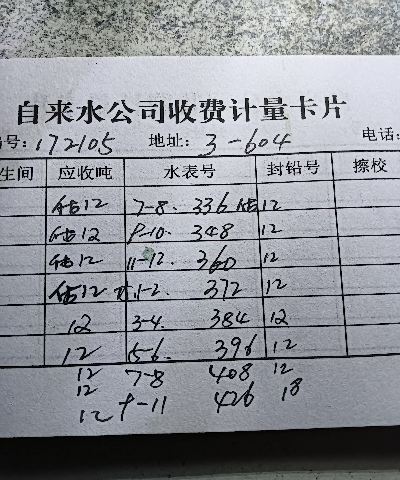 自来水公司收费计量卡片
号:172105 地址: 3-604 电话:
生间 应收吨 水表号 封铅号 擦校
估12 7-8. 336 估12
估12 9-10. 348 12
估12 11-12. 360 12
估12 1-2. 372 12
12 3-4. 384 12
12 5-6. 396 12
12 7-8 408 12
12
12 9-11 426 18